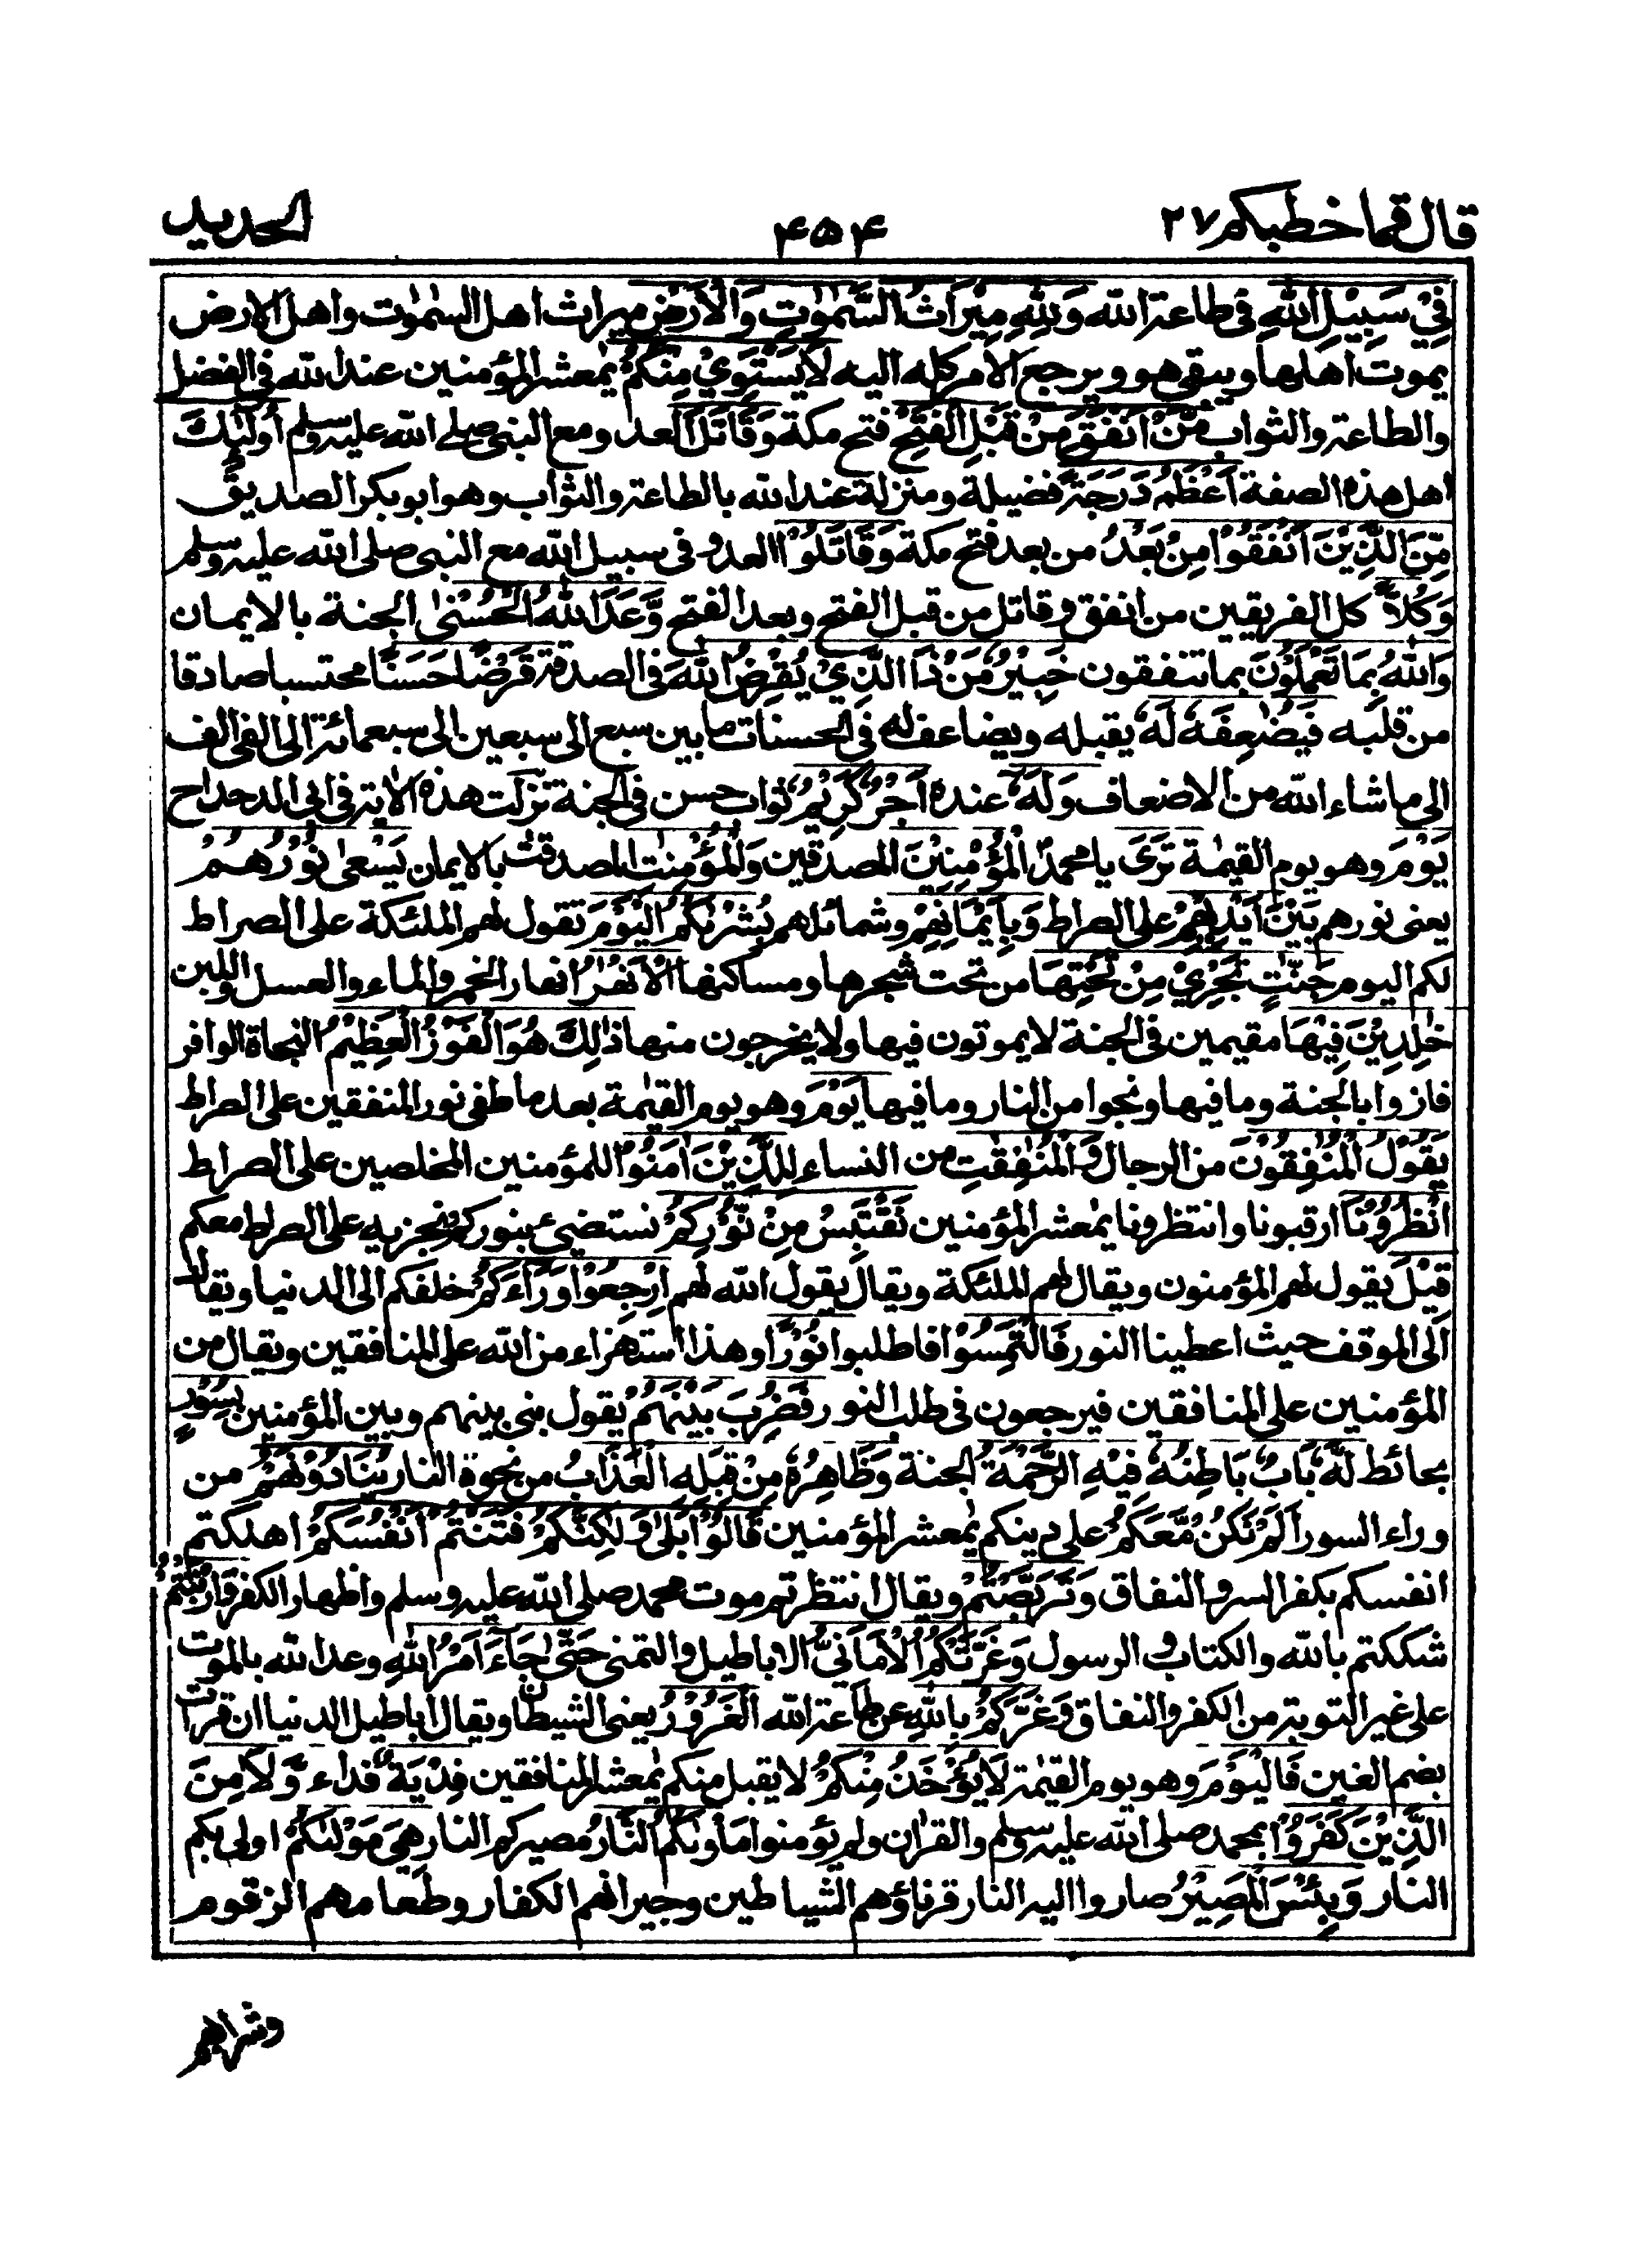 قال فما خطبكم ٢٧
۴۵۴
الحديد
فِيْ سَبِيْلِ اللّٰهِ فى طاعة الله وَلِلّٰهِ مِيْرَاثُ السَّمٰوٰتِ وَالْاَرْضِ ميراث اهل السمٰوٰت واهل الارض
يموت اهلها ويبقى هو ويرجع الامر كله اليه لَا يَسْتَوِيْ مِنْكُمْ يٰمعشر المؤمنين عند الله فى الفضل
والطاعة والثواب مَّنْ اَنْفَقَ مِنْ قَبْلِ الْفَتْحِ فتح مكة وَقَاتَلَ العدو مع النبى صلے الله عليه وسلم اُولٰٓئِكَ
اهل هذه الصفة اَعْظَمُ دَرَجَةً فضيلة ومنزلة عند الله بالطاعة والثواب وهو ابوبكر الصديق
مِّنَ الَّذِيْنَ اَنْفَقُوْا مِنْ بَعْدُ من بعد فتح مكة وَقَاتَلُوْا العدو فى سبيل الله مع النبى صلى الله عليه وسلم
وَكُلًّا كل الفريقين من انفق وقاتل من قبل الفتح وبعد الفتح وَّعَدَ اللّٰهُ الْحُسْنٰى الجنة بالايمان
وَاللّٰهُ بِمَا تَعْمَلُوْنَ بما تنفقون خَبِيْرٌ مَنْ ذَا الَّذِيْ يُقْرِضُ اللّٰهَ فى الصدقة قَرْضًا حَسَنًا محتسبا صادقا
من قلبه فَيُضٰعِفَهٗ لَهٗ يقبله ويضاعف له فى الحسنات ما بين سبع الى سبعين الى سبعمائة الى الفى الف
الى ما شاء الله من الاضعاف وَلَهٗٓ عنده اَجْرٌ كَرِيْمٌ ثواب حسن فى الجنة نزلت هذه الاية فى ابى الدحداح
يَوْمَ وهو يوم القيٰمة تَرَى يا محمد الْمُؤْمِنِيْنَ المصدقين وَالْمُؤْمِنٰتِ المصدقات بالايمان يَسْعٰى نُوْرُهُمْ
يعنى نورهم بَيْنَ اَيْدِيْهِمْ على الصراط وَبِاَيْمَانِهِمْ وشمائلهم بُشْرٰىكُمُ الْيَوْمَ تقول لهم الملئكة على الصراط
لكم اليوم جَنّٰتٍ تَجْرِيْ مِنْ تَحْتِهَا من تحت شجرها ومساكنها الْاَنْهٰرُ انهار الخمر والماء والعسل واللبن
خٰلِدِيْنَ فِيْهَا مقيمين فى الجنة لا يموتون فيها ولا يخرجون منها ذٰلِكَ هُوَ الْفَوْزُ الْعَظِيْمُ النجاة الوافر
فازوا بالجنة وما فيها ونجوا من النار وما فيها يَوْمَ وهو يوم القيٰمة بعد ما طفى نور المنفقين على الصراط
يَقُوْلُ الْمُنٰفِقُوْنَ من الرجال وَالْمُنٰفِقٰتِ من النساء لِلَّذِيْنَ اٰمَنُوْا للمؤمنين المخلصين على الصراط
انْظُرُوْنَا ارقبونا وانتظرونا يٰمعشر المؤمنين نَقْتَبِسْ مِنْ نُّوْرِكُمْ نستضىء بنوركم ونجز به على الصراط معكم
قِيْلَ يقول لهم المؤمنون ويقال لهم الملئكة ويقال يقول الله لهم ارْجِعُوْا وَرَآءَكُمْ خلفكم الى الدنيا ويقال
الى الموقف حيث اعطينا النور فَالْتَمِسُوْا فاطلبوا نُوْرًا وهذا استهزاء من الله على المنافقين ويقال من
المؤمنين على المنافقين فيرجعون فى طلب النور فَضُرِبَ بَيْنَهُمْ يقول بنى بينهم وبين المؤمنين بِسُوْرٍ
بحائط لَّهٗ بَابٌ بَاطِنُهٗ فِيْهِ الرَّحْمَةُ الجنة وَظَاهِرُهٗ مِنْ قِبَلِهِ الْعَذَابُ من نحوه النار يُنَادُوْنَهُمْ من
وراء السور اَلَمْ نَكُنْ مَّعَكُمْ على دينكم يٰمعشر المؤمنين قَالُوْا بَلٰى وَلٰكِنَّكُمْ فَتَنْتُمْ اَنْفُسَكُمْ اهلكتم
انفسكم بكفر السر والنفاق وَتَرَبَّصْتُمْ ويقال انتظرتم موت محمد صلى الله عليه وسلم واظهار الكفر وَارْتَبْتُمْ
شككتم بالله والكتاب والرسول وَغَرَّتْكُمُ الْاَمَانِىُّ الاباطيل والتمنى حَتّٰى جَآءَ اَمْرُ اللّٰهِ وعد الله بالموت
على غير التوبة من الكفر والنفاق وَغَرَّكُمْ بِاللّٰهِ عن طاعة الله الْغَرُوْرُ يعنى الشيطان ويقال اباطيل الدنيا ان قرأت
بضم الغين فَالْيَوْمَ وهو يوم القيٰمة لَا يُؤْخَذُ مِنْكُمْ لا يقبل منكم يٰمعشر المنافقين فِدْيَةٌ فداء وَّلَا مِنَ
الَّذِيْنَ كَفَرُوْا بمحمد صلى الله عليه وسلم والقراٰن ولم يؤمنوا مَاْوٰىكُمُ النَّارُ مصيركم النار هِيَ مَوْلٰىكُمْ اولى بكم
النار وَبِئْسَ الْمَصِيْرُ صاروا اليه النار قرناؤهم الشياطين وجيرانهم الكفار وطعامهم الزقوم
وشرابهم